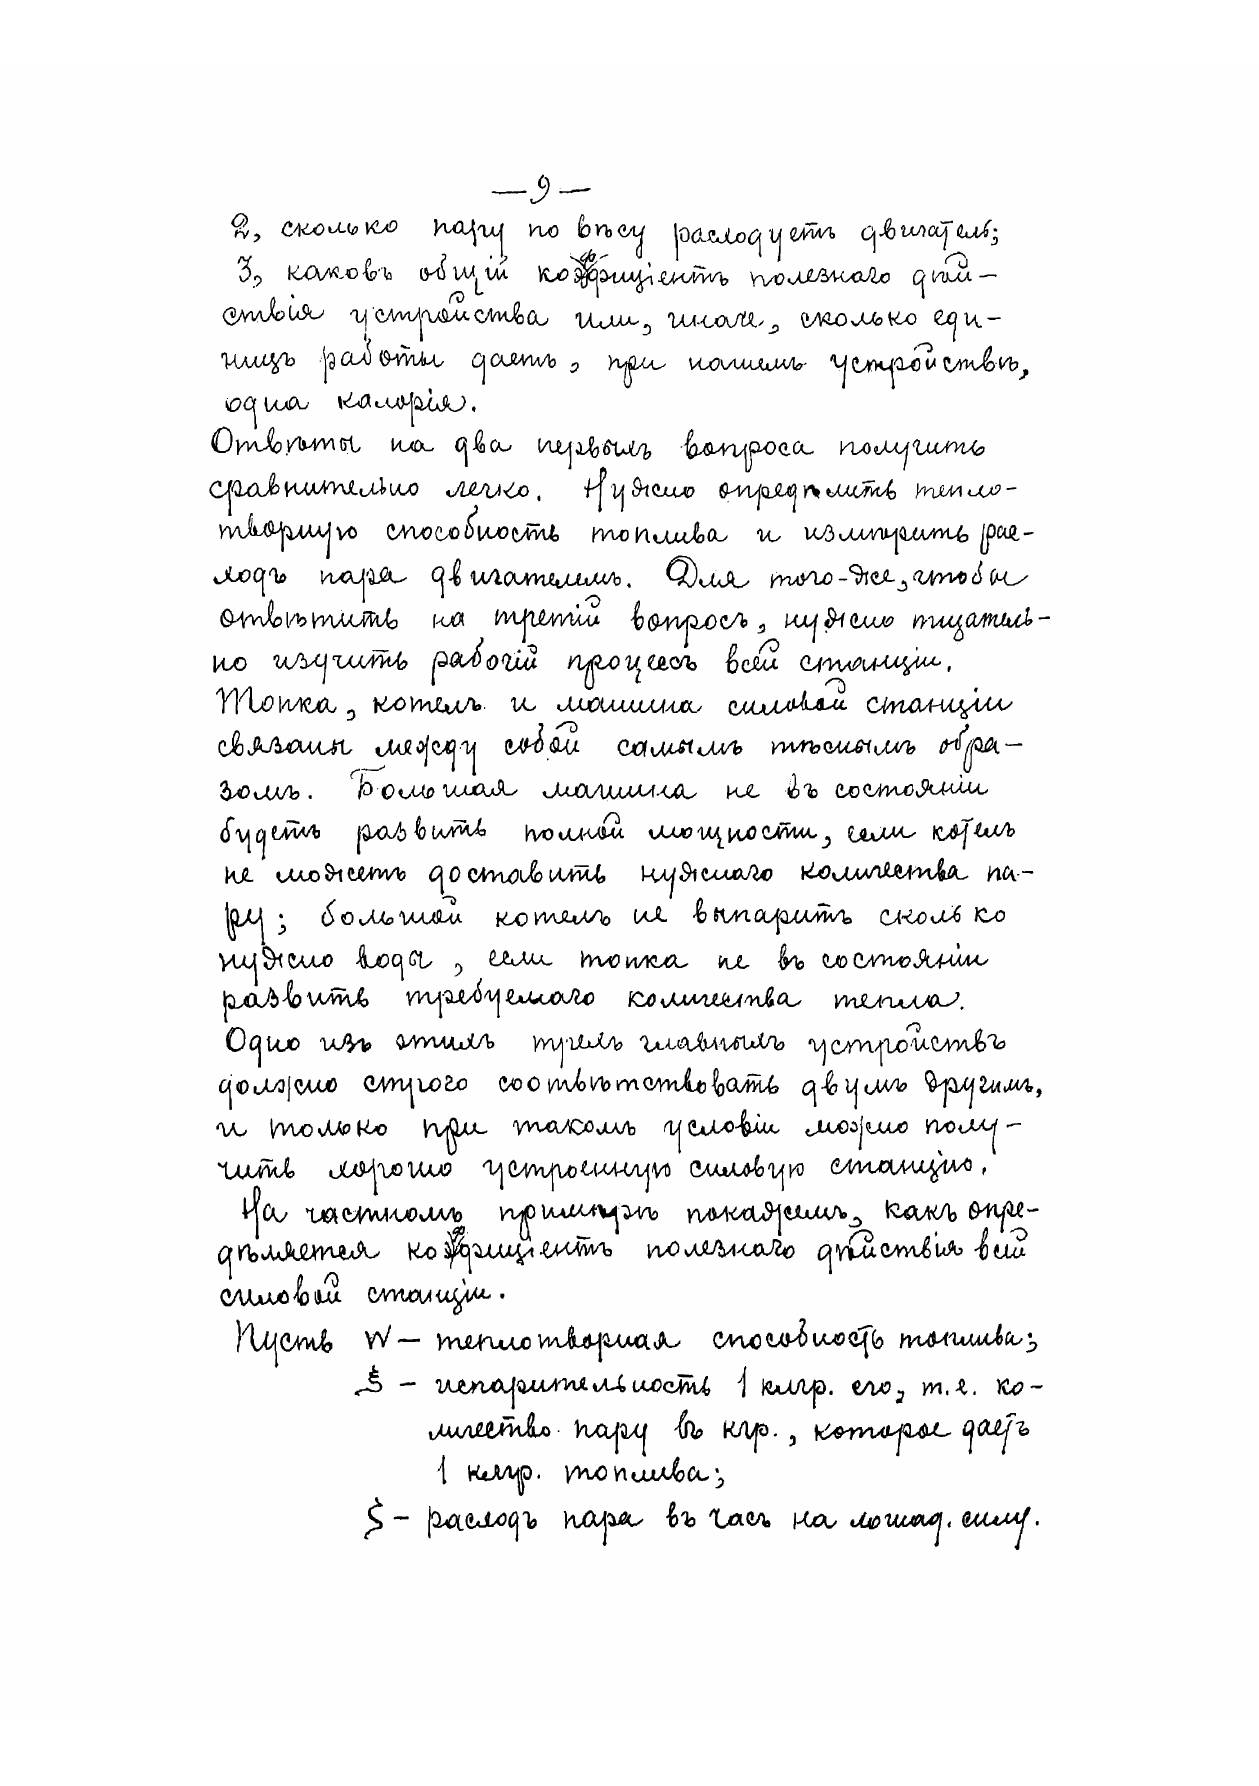 — 9 —
2, сколько пару по вѣсу расходуетъ двигатель;
3, каковъ общій коэффиціентъ полезнаго дѣй-
ствія устройства или, иначе, сколько еди-
ницъ работы даетъ, при нашемъ устройствѣ,
одна калорія.
Отвѣты на два первыхъ вопроса получить
сравнительно легко. Нужно опредѣлить тепло-
творную способность топлива и измѣрить рас-
ходъ пара двигателемъ. Для того-же, чтобы
отвѣтить на третій вопросъ, нужно тщатель-
но изучить рабочій процессъ всей станціи.
Топка, котелъ и машина силовой станціи
связаны между собой самымъ тѣснымъ обра-
зомъ. Большая машина не въ состояніи
будетъ развить полной мощности, если котелъ
не можетъ доставить нужнаго количества па-
ру; большой котелъ не выпаритъ сколько
нужно воды, если топка не въ состояніи
развить требуемаго количества тепла.
Одно изъ этихъ трехъ главныхъ устройствъ
должно строго соотвѣтствовать двумъ другимъ,
и только при такомъ условіи можно полу-
чить хорошо устроенную силовую станцію.
На частномъ примѣрѣ покажемъ, какъ опре-
дѣляется коэффиціентъ полезнаго дѣйствія всей
силовой станціи.
Пусть W — теплотворная способность топлива;
ξ — испарительность 1 клгр. его, т.е. ко-
личество пару въ кгр., которое даетъ
1 клгр. топлива;
ζ — расходъ пара въ часъ на лошад. силу.